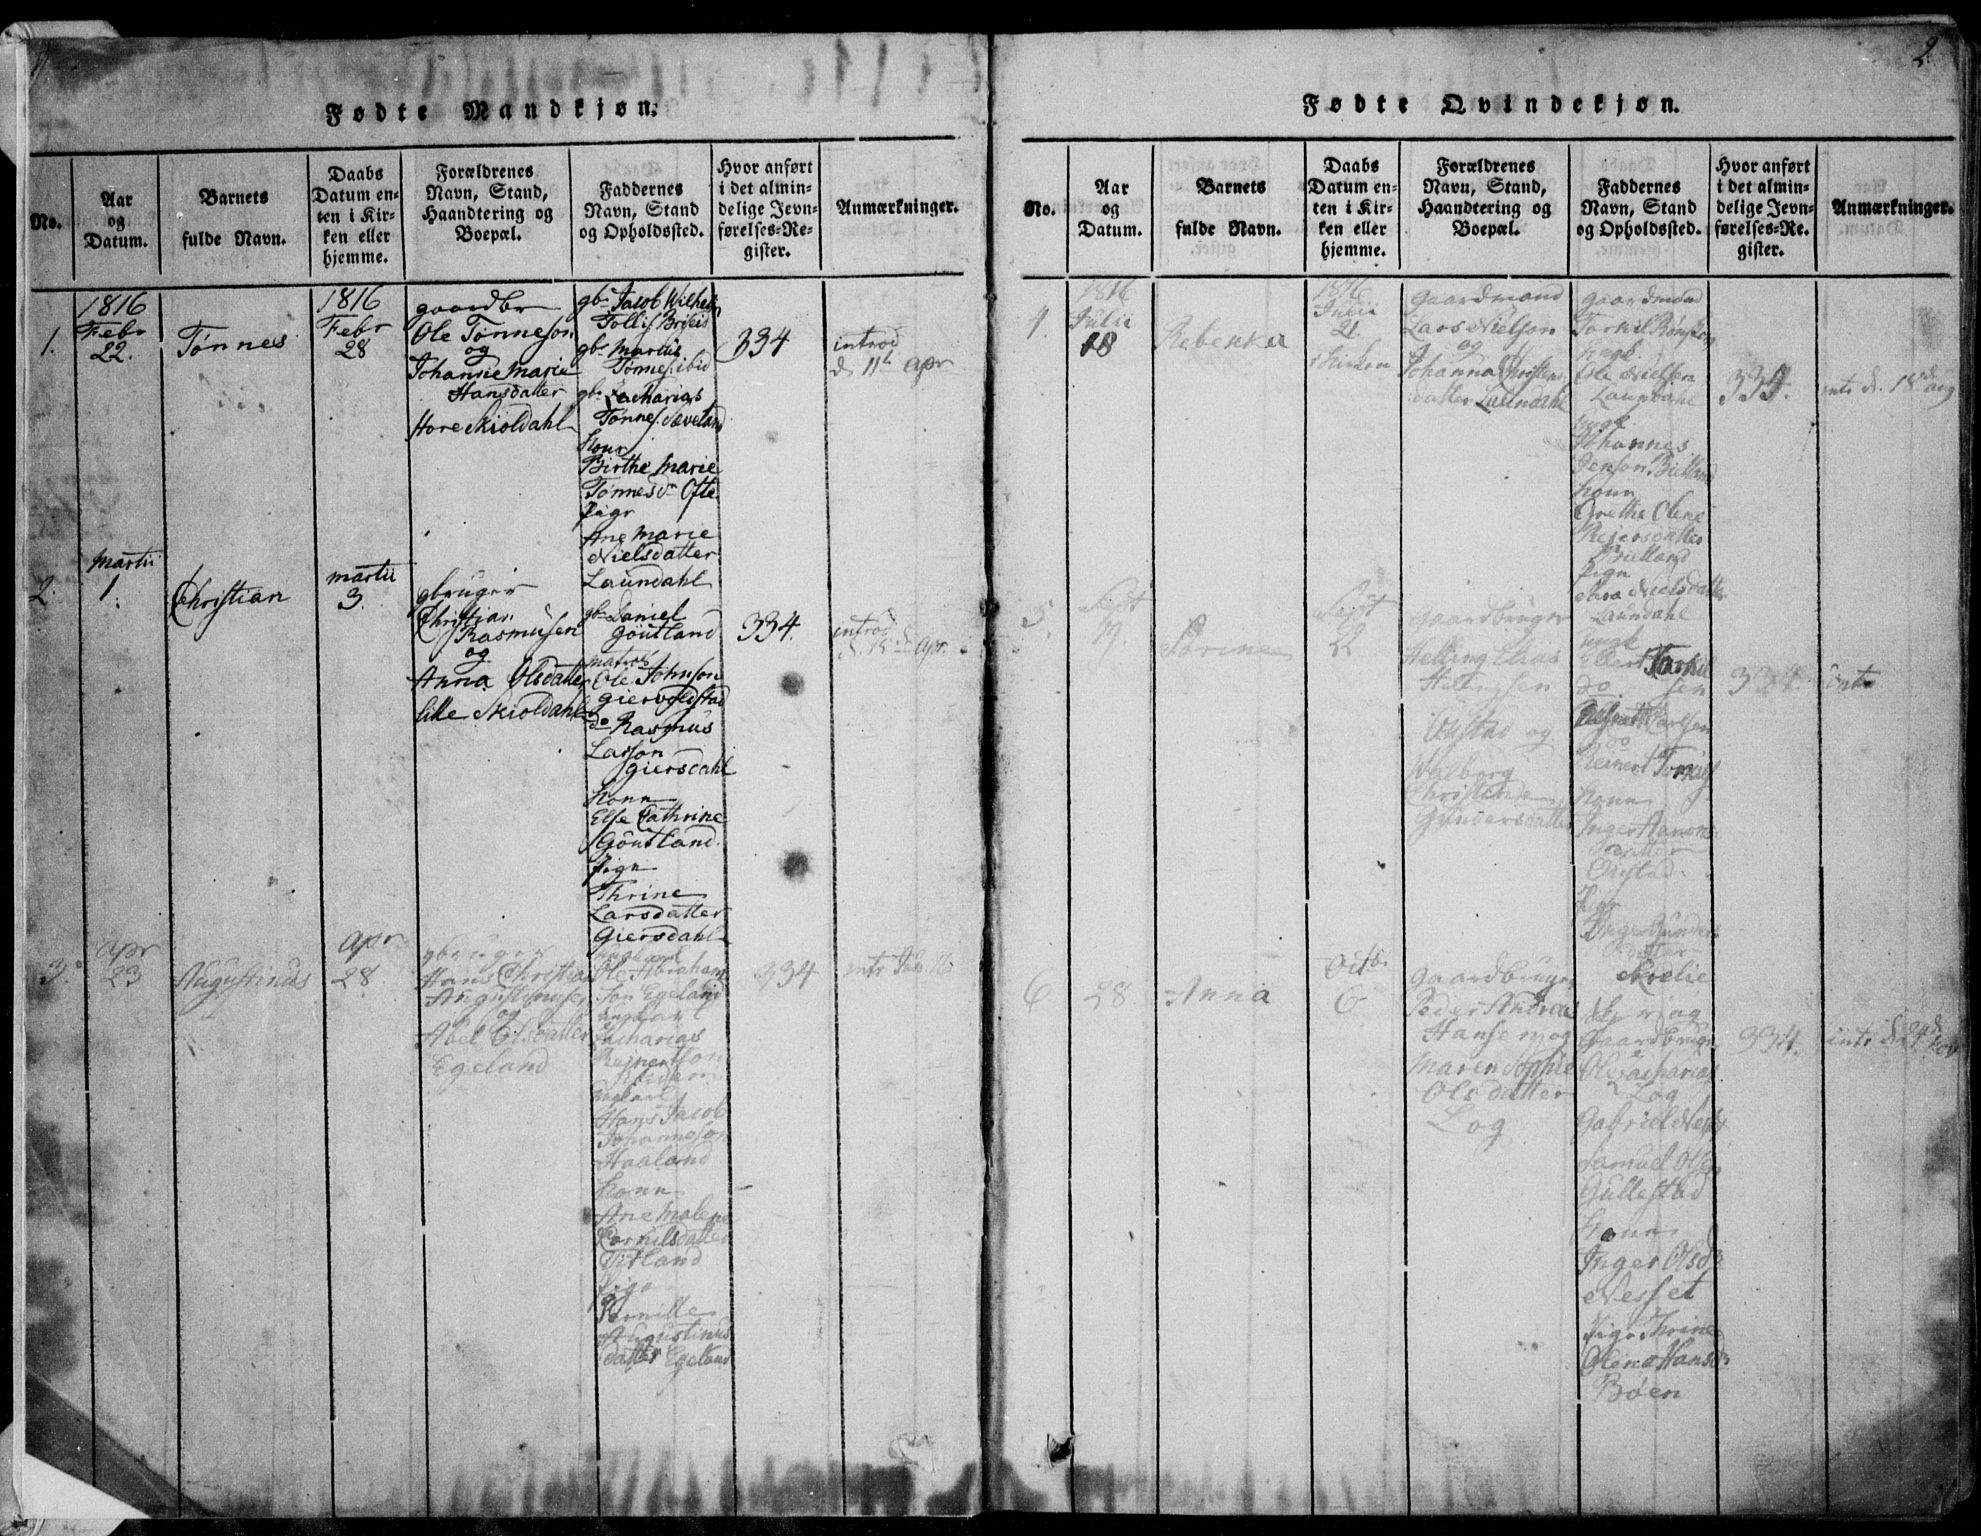 2.
Fødte Mandkjøn.
No.
Aar
og
Datum.
Barnets
fulde Navn.
Daabs
Datum en-
ten i Kir-
ken eller
hjemme.
Forældrenes
Navn, Stand,
Haandtering og
Boepæl.
Faddernes
Navn, Stand
og Opholdssted.
Hvor anført
i det almin-
delige Jevn-
førelses-Re-
gister.
Anmærkninger.
1.
1816
Febr
22.
Tønnes
1816
Febr
28
gaardbr
Ole Tønneson
og
Johanne Marie
Hansdatter
Hore Skioldahl
gbr Jacob Wilhelm
gbr Marcus
Tønnes. ibid
gbr Zacharias
Tønnes.
Kour
Birthe Marie
Tønnesdr Ofte
Pigr
Ane Marie
Nielsdatter
Laundahl
334
introd
d 11te apr
2.
Martii
1.
Christian
martii
3.
gbruger
Christian
Rasmusen
og
Anna Olsdatter
lille Skioldahl
gbr Daniel
Göutland
matros
Ole Johnson
Giervoldstad
do Rasmus
Larson
Giersdahl
Konn
Else Cathrine
Göutland.
Pign
Thrine
Larsdatter
Giersdahl
334.
introd. d.
apr.
3.
apr
23
Augustinus
apr
28
gbruger
Hans Christian
Augustinusen
og
Abel Olsdatter
Egeland
ungkarl
Ole Abraham
son Egeland
ungkarl
Zacharias
Reinertson
ungkarl
Hans Jacob
Johanneson
Haaland
Konn
Ane Malene
Cornilsdatter
Titland
Pign
Pernille
Augustinus
datter Egeland
334
intr
Fødte Qvindekjøn.
No.
Aar
og
Datum.
Barnets
fulde Navn.
Daabs
Datum en-
ten i Kir-
ken eller
hjemme.
Forældrenes
Navn, Stand,
Haandtering og
Boepæl.
Faddernes
Navn, Stand
og Opholdssted.
Hvor anført
i det almin-
delige Jevn-
førelses-Re-
gister.
Anmærkninger.
4.
1816
Julii
18
Rebekka
1816
Julii
21.
i Kirken
gaardmand
Lars Nielson
og
Johanna Christens
datter Laundahl
gaardmand
Torkil
ungk.
Ole Nielsen
Laundahl
ungk
Johannes
Jenson
Konn
Grethe Olene
Reiersdatter
Pign
Sara Nielsdatter
Laundahl
334.
intr d. 18de aug
5.
Sept
19
Sorine
Sept
22
gaardbruger
Helling Claas
Hellingsen
Oustad og
Walborg
Christine
Gundersdatter
ungk
Ellert Torkil
do sen
do
Reinert Torkils
Konn
Inger Aanons
datter
Oustad.
Pigr
Inger Gunders
datter
334.
intr
6
28
Anna
Octb.
6
gaardbruger
Peder Andreas
Hansen og
Maren Sophie
Olsdatter
Log
gaardbruger
Ole Zacharias
Log
Gabriel
Samuel Olsen
Gullestad
Konn
Inger Olsdr
Nesset
Pigr Thrine
Olene Hansdr
Bøen
334.
intr d.
nov